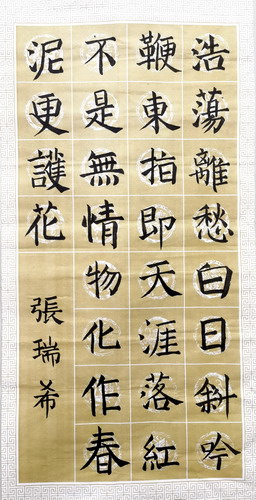 浩蕩離愁白日斜吟
鞭東指即天涯落紅
不是無情物化作春
泥更護花
張瑞希